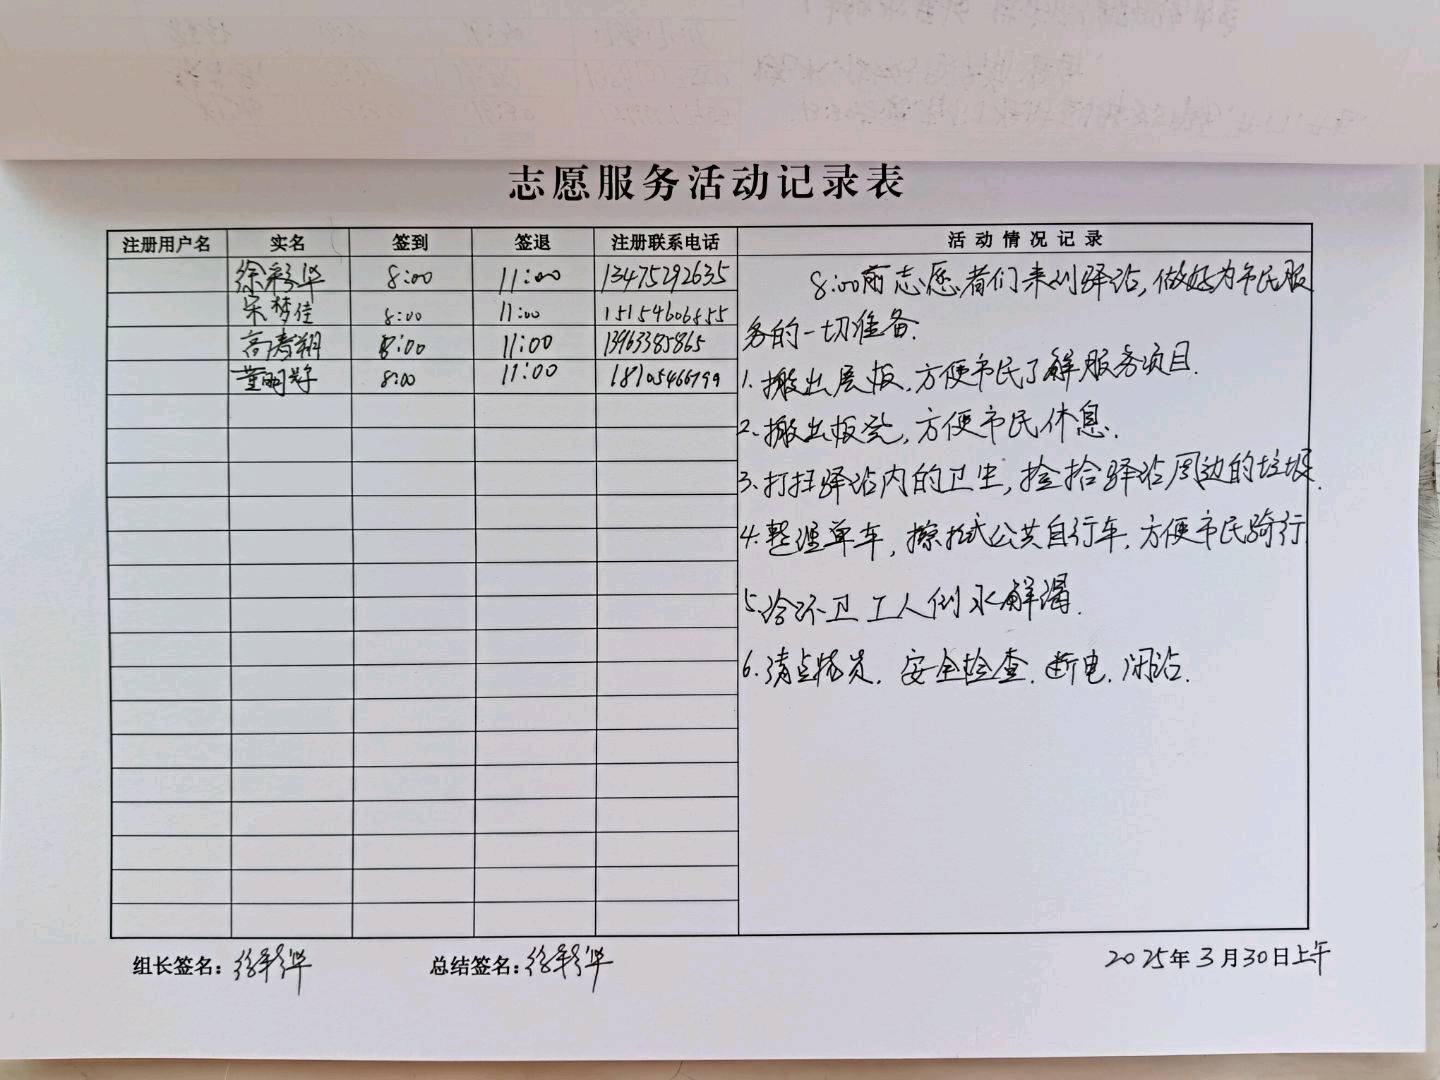 志愿服务活动记录表
注册用户名 实名 签到 签退 注册联系电话 活动情况记录
徐彩华 8:00 11:00 13475292635
宋梦佳 8:00 11:00 15154606855
高青翔 8:00 11:00 13963385865
8:00 11:00 18105466799
8:00前志愿者们来到驿站,做好为市民服
务的一切准备.
1.搬出展板,方便市民了解服务项目.
2.搬出板凳,方便市民休息.
3.打扫驿站内的卫生,捡拾驿站周边的垃圾.
4.整理单车,擦拭公共自行车,方便市民骑行
5.给环卫工人倒水解渴.
6.清点物资.安全检查.断电.闭站.
组长签名:徐彩华 总结签名:徐彩华 2025年3月30日上午